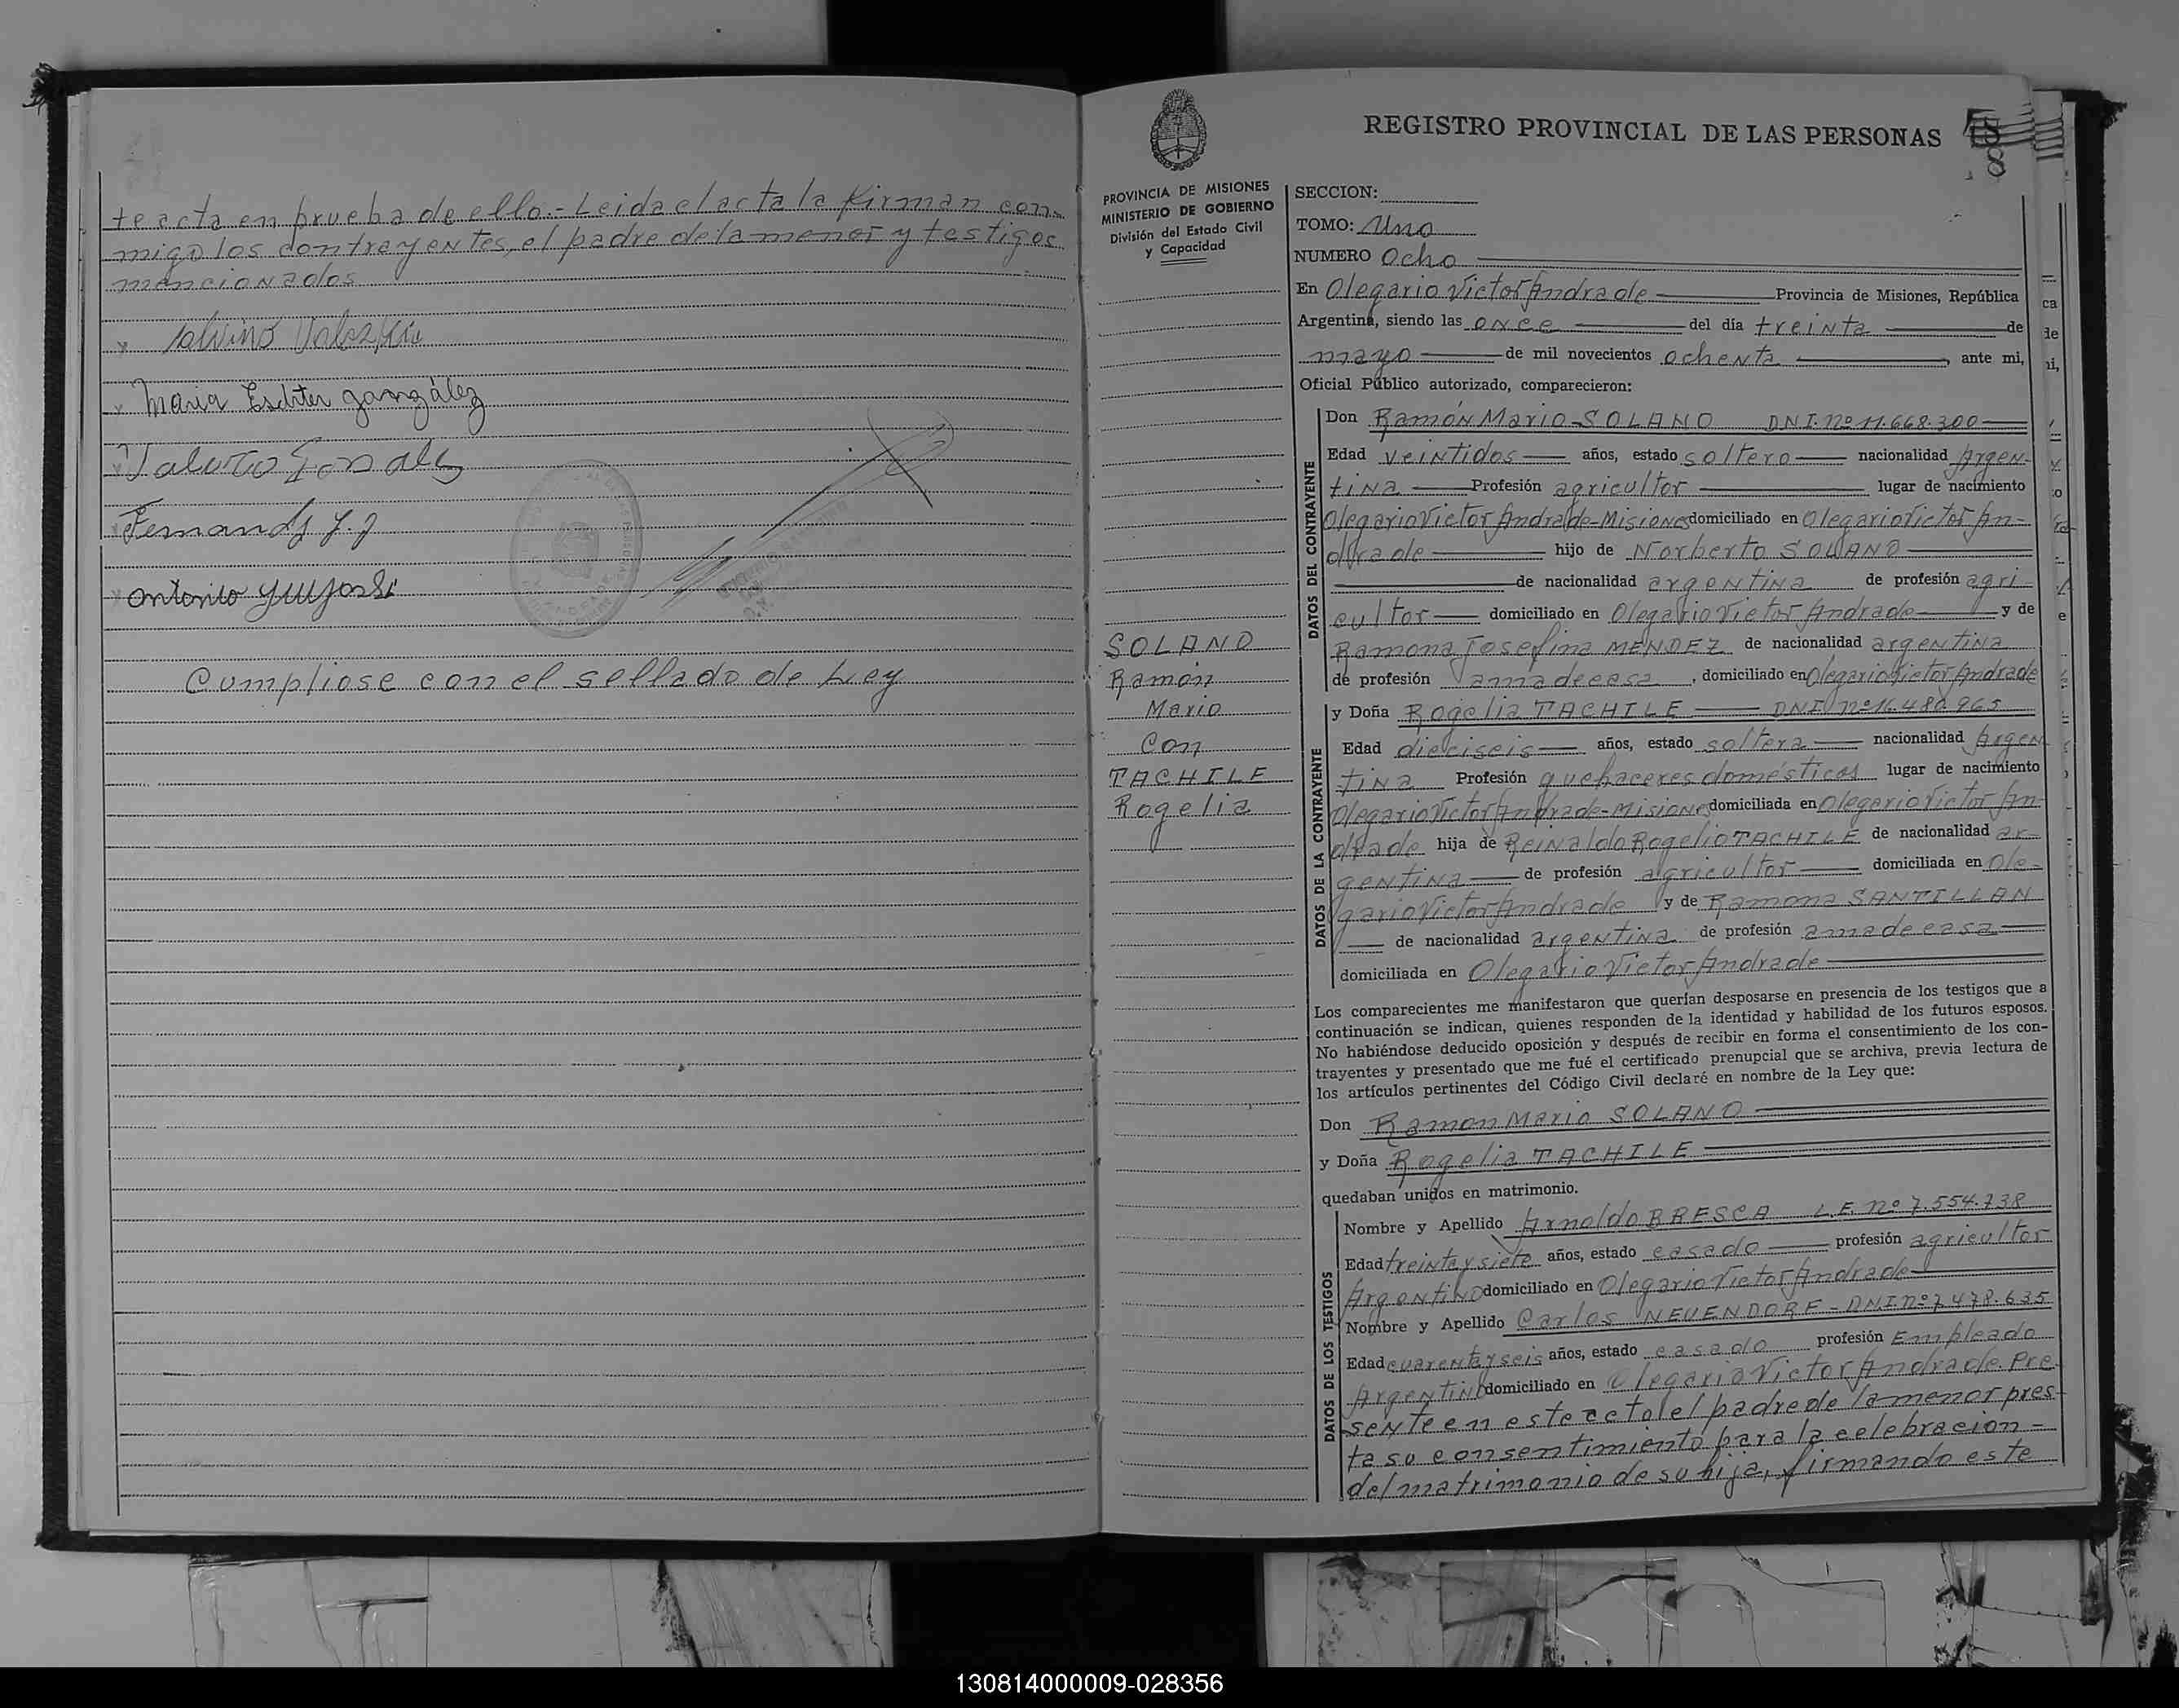 te acta en prueba de ello.- Leida el acta la firman con-
migo los contrayentes, el padre de la menor y testigos
mencionados
Maria Eschter González
Fernandz J. J
Antonio
Cumpliose con el sellado de Ley
REGISTRO PROVINCIAL DE LAS PERSONAS
8
PROVINCIA DE MISIONES
MINISTERIO DE GOBIERNO
División del Estado Civil
y Capacidad
SOLANO
Ramón
Mario
Con
TACHILE
Rogelia
SECCION:
TOMO: Uno
NUMERO Ocho
En Olegario Victor Andrade Provincia de Misiones, República
Argentina, siendo las once del día treinta de
mayo de mil novecientos ochenta, ante mi,
Oficial Público autorizado, comparecieron:
DATOS DEL CONTRAYENTE
Don Ramón Mario SOLANO DNI. nº 11.668.300
Edad veintidos años, estado soltero nacionalidad Argen-
tina Profesión agricultor lugar de nacimiento
Olegario Victor Andrade-Misiones domiciliado en Olegario Victor An-
drade hijo de Norberto SOLANO
de nacionalidad argentina de profesión agri
cultor domiciliado en Olegario Victor Andrade y de
Ramona Josefina MENDEZ de nacionalidad argentina
de profesión ama de casa, domiciliado en Olegario Victor Andrade
DATOS DE LA CONTRAYENTE
y Doña Rogelia TACHILE DNI nº 16.480.965
Edad dieciseis años, estado soltera nacionalidad Argen
tina Profesión quehaceres domésticos lugar de nacimiento
Olegario Victor Andrade-Misiones domiciliada en Olegario Victor An-
drade hija de Reinaldo Rogelio TACHILE de nacionalidad ar
gentina de profesión agricultor domiciliada en Ole-
gario Victor Andrade y de Ramona SANTILLAN
de nacionalidad argentina de profesión ama de casa
domiciliada en Olegario Victor Andrade
Los comparecientes me manifestaron que querían desposarse en presencia de los testigos que a
continuación se indican, quienes responden de la identidad y habilidad de los futuros esposos.
No habiéndose deducido oposición y después de recibir en forma el consentimiento de los con-
trayentes y presentado que me fué el certificado prenupcial que se archiva, previa lectura de
los artículos pertinentes del Código Civil declaré en nombre de la Ley que:
Don Ramon Mario SOLANO
y Doña Rogelia TACHILE
quedaban unidos en matrimonio.
DATOS DE LOS TESTIGOS
Nombre y Apellido Arnoldo BRESCA L.E. nº 7.554.738
Edad treinta y siete años, estado casado profesión agricultor
Argentino domiciliado en Olegario Victor Andrade
Nombre y Apellido Carlos NEUENDORF - DNI. nº 7.478.635
Edad cuarenta y seis años, estado casado profesión Empleado
Argentino domiciliado en Olegario Victor Andrade. Pre
sente en este acto el padre de la menor pres-
ta su consentimiento para la celebracion-
del matrimonio de su hija, firmando este
130814000009-028356